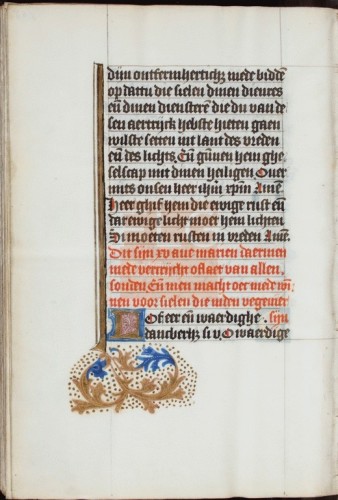 dijn ontfermherticheit mede biddē
op dattu die sielen dinen dieners
eñ dinen dienstrē die du van de
sen aertrijck hebste hieten gaen
wilste setten int lant des vreden
eñ des lichts. Eñ gunnen hem ghe
selscap mit dinen heiligen Over
mits onsen heer ihm xpm Amē.
Heer ghif hem die ewige rust eñ
dat ewige licht moet hem lichten
Si moeten rusten in vreden Amē.
Dit sijn xv ave marien daer mē
mede vercrijcht oflaet van allen
sonden. Eñ men macht oec mede wī
nen voor sielen die inden vegevier
O feer eñ waerdighe. sijn
dancberheit si v. O waerdige